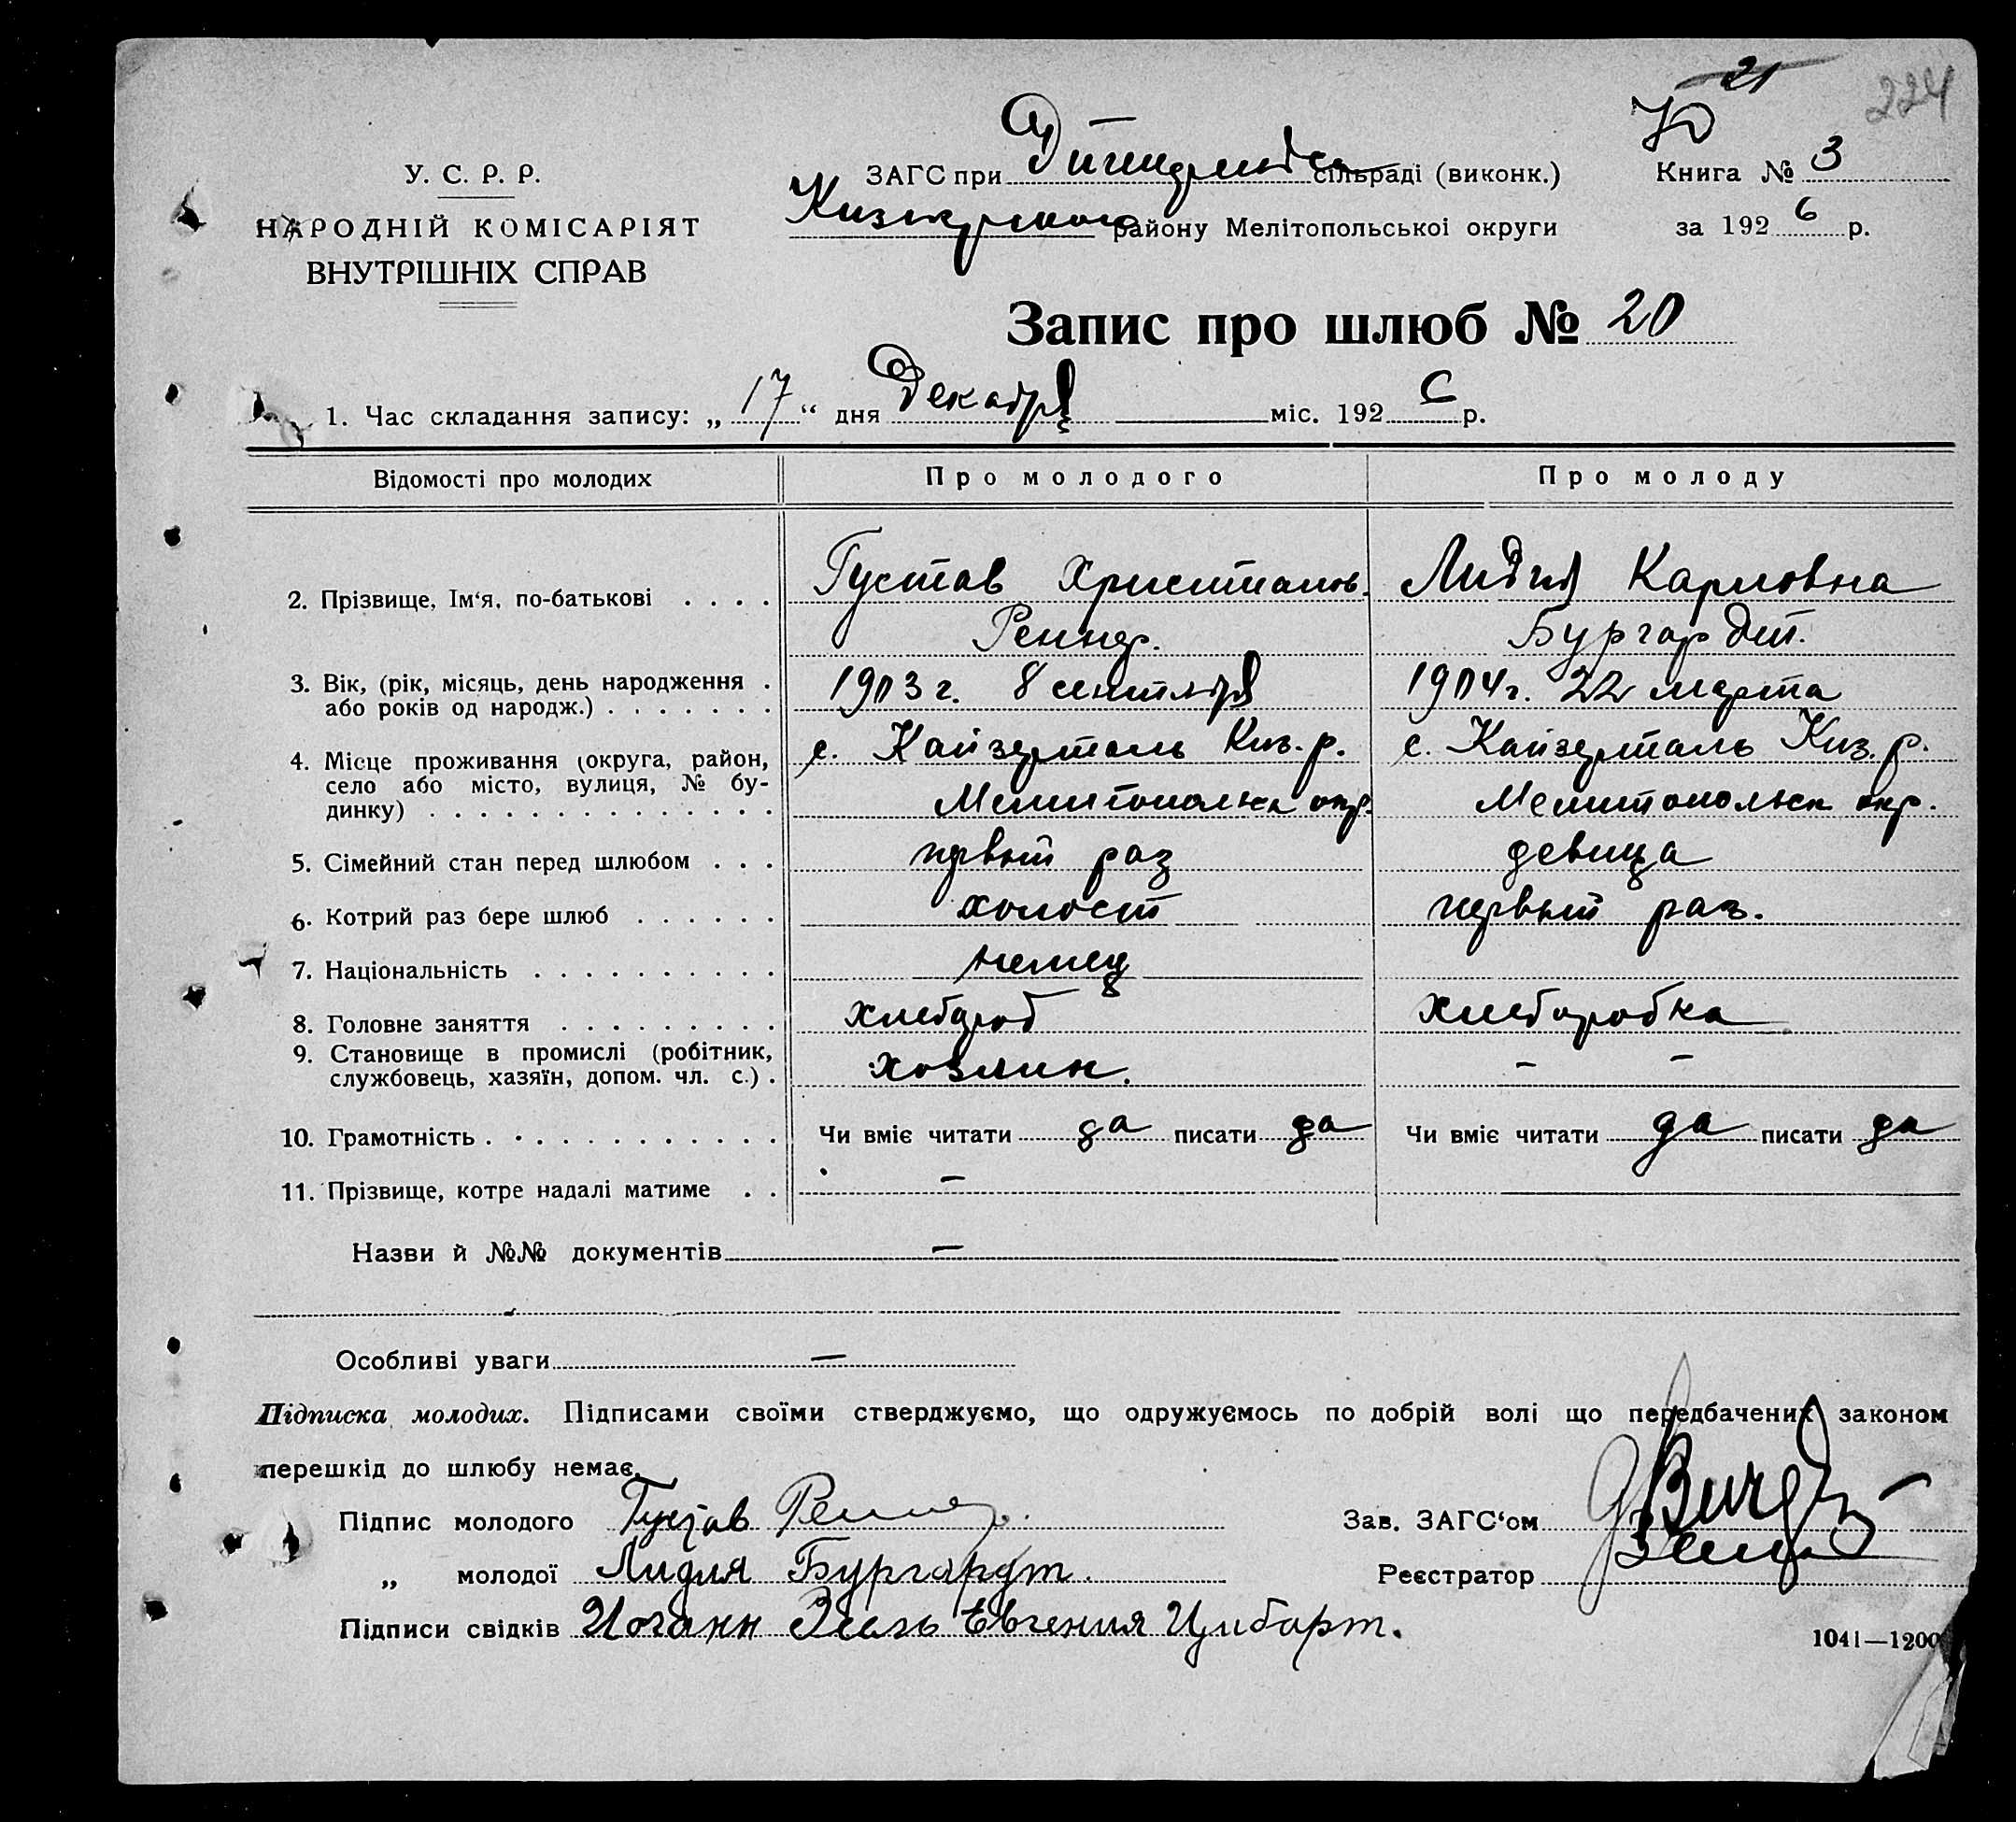 21
224
70
У. С. Р. Р.
НАРОДНІЙ КОМІСАРІЯТ
ВНУТРІШНІХ СПРАВ
ЗАГС при сільраді (виконк.)
району Мелітопольськоі округи
Книга № 3
за 1926 р.
Запис про шлюб № 20
1. Час складання запису: „17“ дня Декабря міс. 1926 р.
Відомості про молодих
Про молодого
Про молоду
2. Прізвище, Ім‘я, по-батькові . . . .
Густав Християнов.
Реннер.
Лидия Карловна
Бургардт.
3. Вік, (рік, місяць, день народження .
або років од народж.) . . . . . . .
1903 г. 8 сентября
1904 г. 22 марта
4. Місце проживання (округа, район,
село або місто, вулиця, № бу-
динку) . . . . . . . . . . . . . .
с. Кайзерталь Киз. р.
Мелитопольск окр.
с. Кайзерталь Киз. р.
Мелитопольск окр.
5. Сімейний стан перед шлюбом . . .
первый раз
девица
6. Котрий раз бере шлюб . . . . . .
холост
первый раз.
7. Національність . . . . . . . . . .
немец
8. Головне заняття . . . . . . . . .
хлебороб
хлеборобка
9. Становище в промислі (робітник,
службовець, хазяїн, допом. чл. с.) .
хозяин.
– –
10. Грамотність . . . . . . . . . . . .
Чи вміє читати да писати да
Чи вміє читати да писати да
11. Прізвище, котре надалі матиме . .
–
Назви й №№ документів –
Особливі уваги –
Підписка молодих. Підписами своїми стверджуємо, що одружуємось по добрій волі що передбачених законом
перешкід до шлюбу немає.
Підпис молодого Густав Реннер.
„ молодої Лидия Бургардт.
Підписи свідків Иоганн Зеель Евгения Цибарт.
Зав. ЗАГС‘ом
Реєстратор
1041—1200